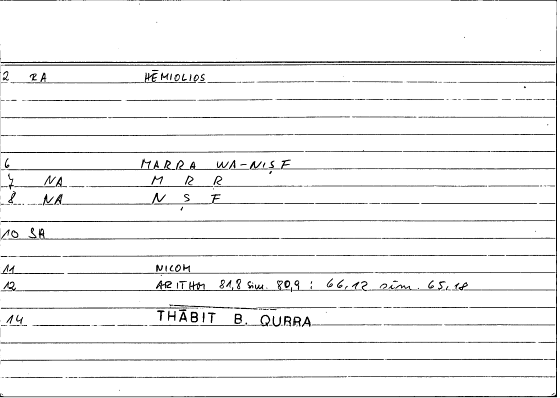 2 RA HĒMIOLIOS
6 MARRA WA-NIṢF
7 NA M R R
8 NA N Ṣ F
10 SA
11 NICOM
12 ARITHM 81,8 sim. 80,9 : 66,12 sim. 65,18
14 THĀBIT B. QURRA